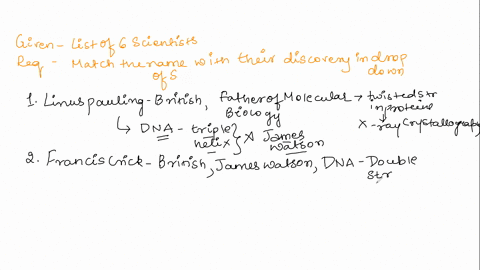 Given - List of 6 Scientists
Req - Match the name with their discovery in drop down
of 5
1. Linus pauling - British, Father of Molecular Biology → twisted str in proteins
↳ DNA - triple helix } X James Watson
X - ray Crystallography
2. Francis Crick - British, James Watson, DNA - Double
Str